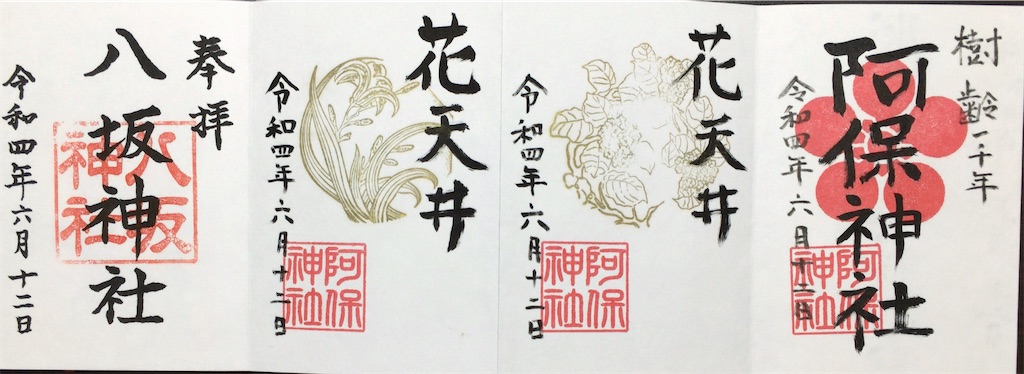 樹齢一千年
阿保神社
令和四年六月十二日
阿保
神社
花天井
令和四年六月十二日
阿保
神社
花天井
令和四年六月十二日
阿保
神社
奉拝
八坂神社
八坂
神社
令和四年六月十二日